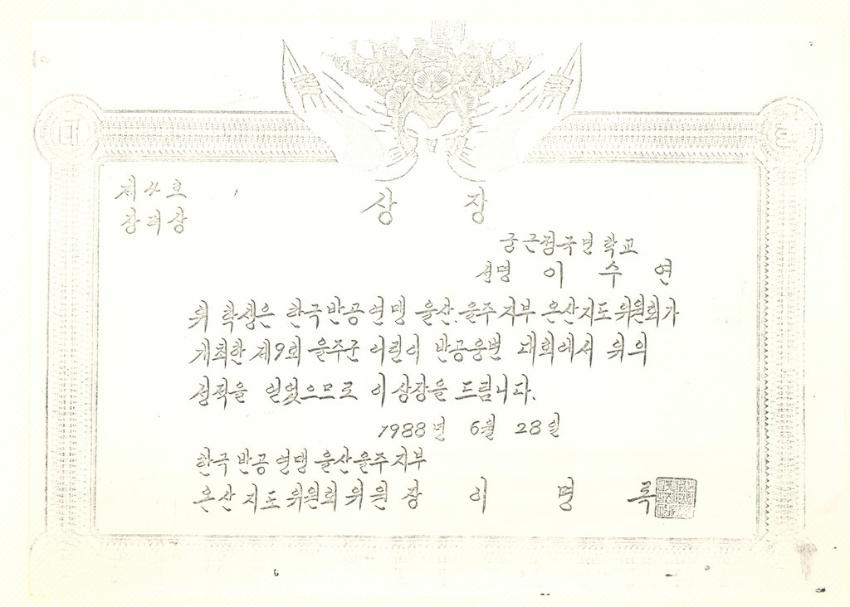 제4호
장려상
상 장
궁근정국민학교
성명 이 수 연
위 학생은 한국반공연맹 울산.울주지부 온산지도위원회가
개최한 제9회 울주군 어린이 반공웅변 대회에서 위의
성적을 얻었으므로 이 상장을 드립니다.
1988년 6월 28일
한국반공연맹 울산울주지부
온산지도위원회위원장 이 명 록